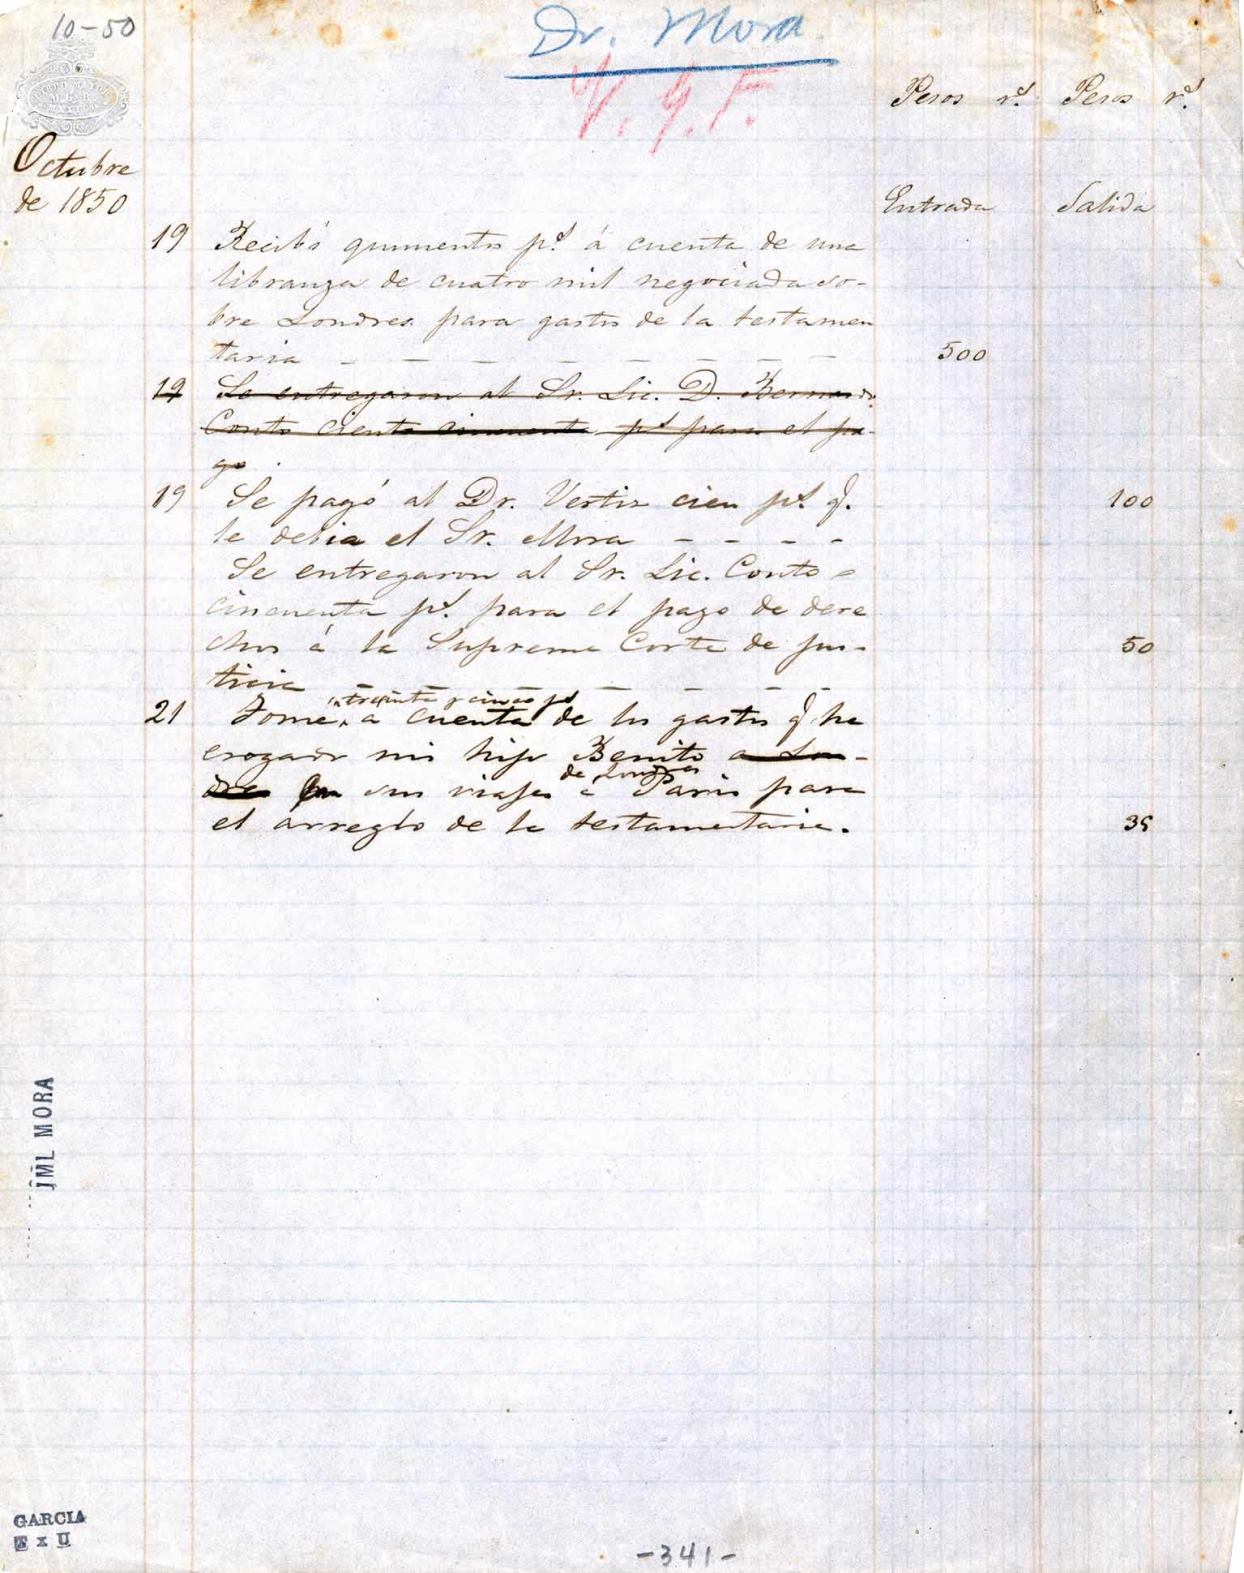 10-50
Dr. Mora
V. G. F.
Pesos rs. Pesos rs.
Octubre
de 1850
Entrada Salida
19 Recibí quinientos ps. á cuenta de una
libranza de cuatro mil negociada so-
bre Londres para gastos de la testamen
taria - - - - - - - - 500
19 Se entregaron al Sr. Lic. D. Bernardo
Couto ciento cincuenta ps para el pa-
go
19 Se pagó al Dr. Vertiz cien ps. q. 100
le debia el Sr. Mora - - - -
Se entregaron al Sr. Lic. Couto
cincuenta ps. para el pago de dere
chos á la Suprema Corte de Jus- 50
ticia - - - - - - - -
treinta y cinco ps
21 Tome a cuenta de los gastos q ha
erogado mi hijo Benito a Lon-
dres en sus viajes de Londres á Paris para
el arreglo de la testamentaria. 35
JML MORA
GARCIA
T x U
-341-